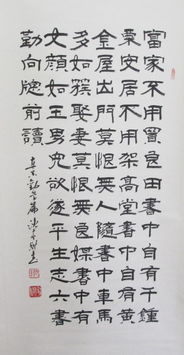 富家不用買良田書中自有千鍾
粟安居不用架高堂書中自有黃
金屋出門莫恨無人隨書中車馬
多如簇娶妻莫恨無良媒書中有
女顏如玉男兒欲遂平生志六經
勤向窗前讀
真宗勸學篇